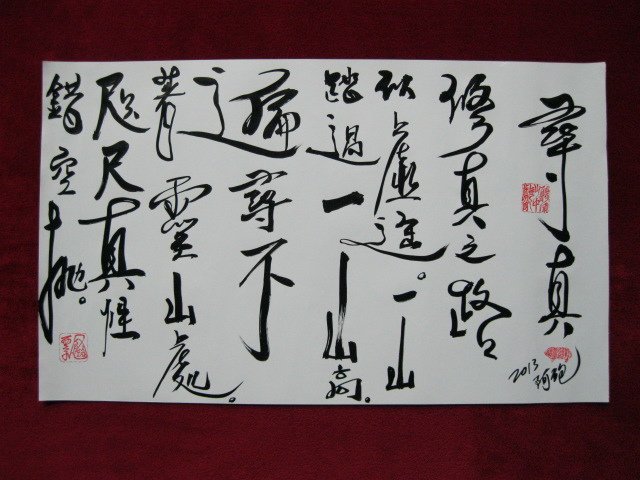 尋真
2013 阿砲
修真之路
似虛遙。一山
踏過一山高。
遍尋不
著靈山處。
咫尺真性
錯空拋。